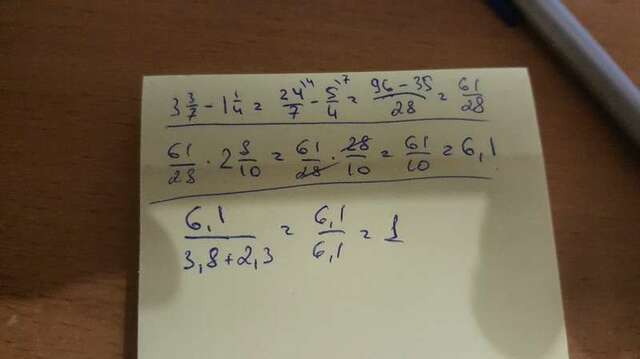 3 3/7 - 1 1/4 = 24/7 \4 - 5/4 \7 = 96-35/28 = 61/28
61/28 · 2 8/10 = 61/28 · 28/10 = 61/10 = 6,1
6,1/3,8+2,3 = 6,1/6,1 = 1